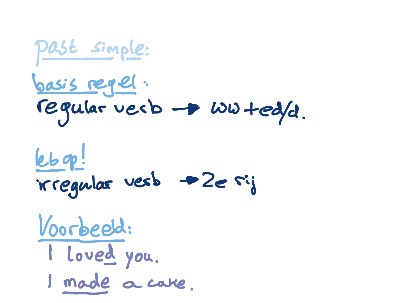 past simple:
basis regel:
regular verb → ww+ed/d.
let op!
irregular verb → 2e rij
Voorbeeld:
I loved you.
I made a cake.